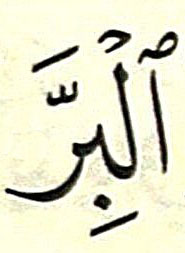 ٱلْبِرَّ